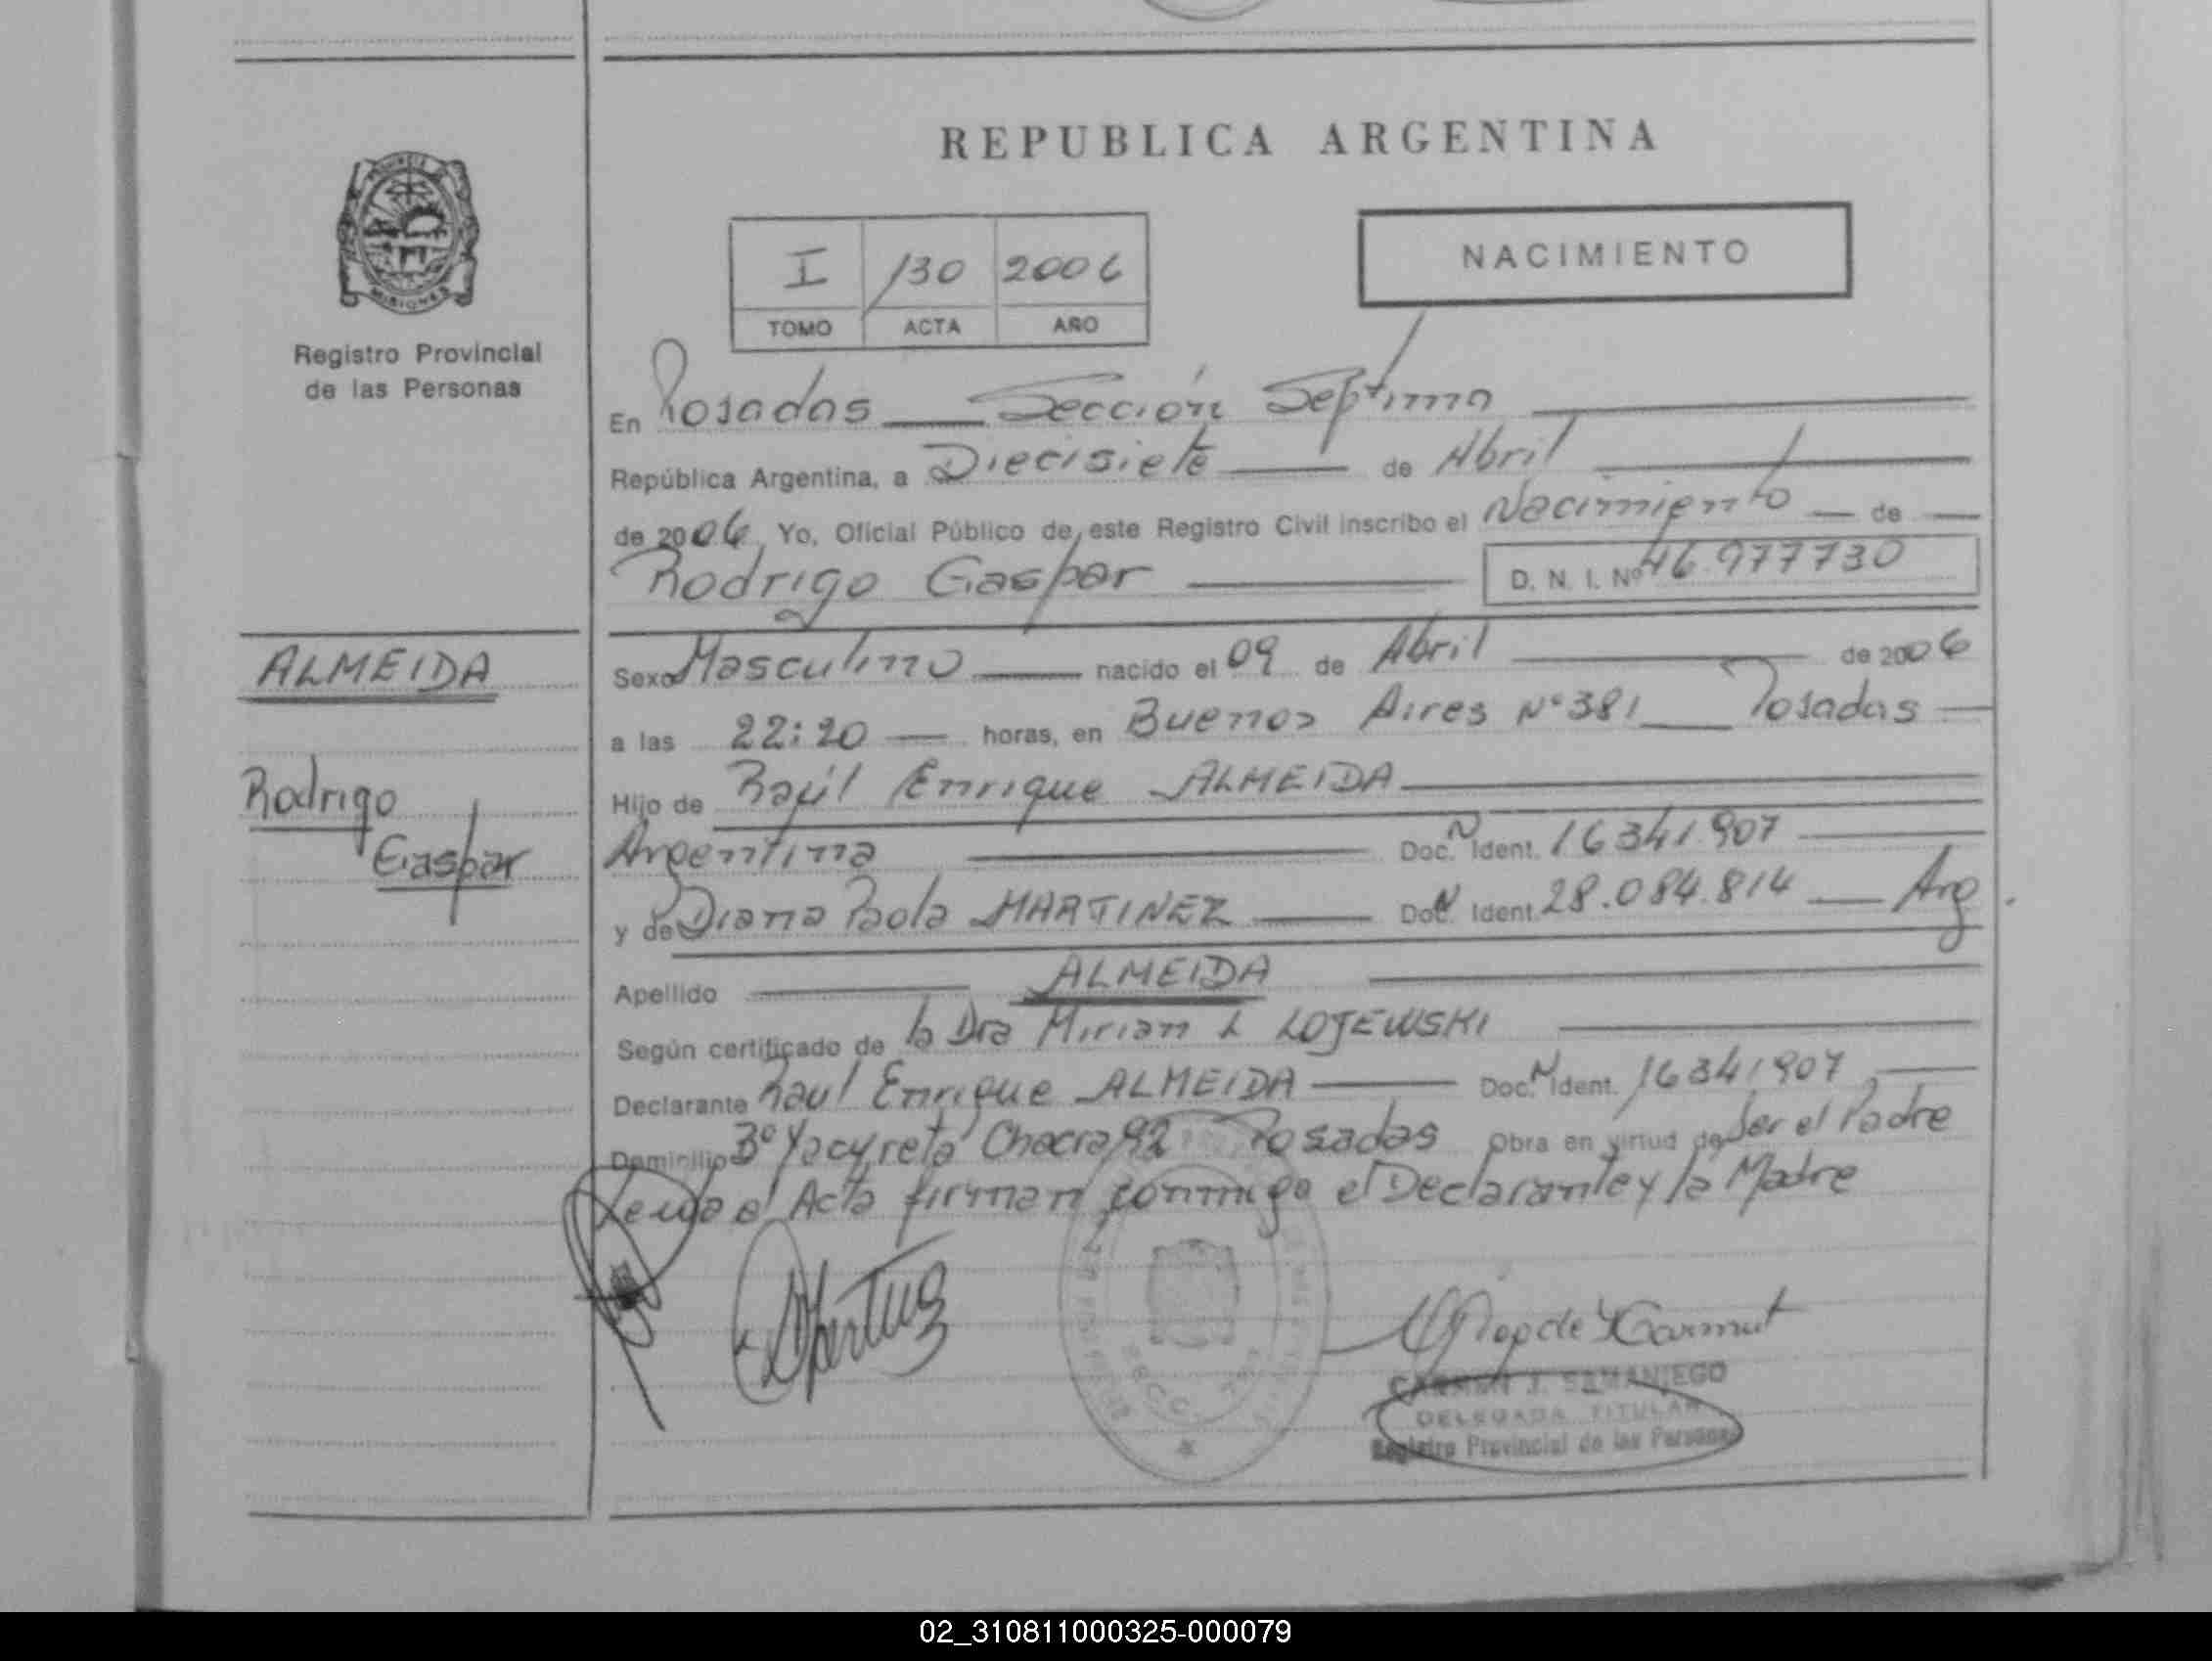 REPUBLICA ARGENTINA
PROVINCIA
MISIONES
Registro Provincial
de las Personas
I /30 2006
TOMO ACTA AÑO
NACIMIENTO
En Posadas Sección Septima
República Argentina, a Diecisiete de Abril
de 2006 Yo, Oficial Público de este Registro Civil inscribo el Nacimiento de
Rodrigo Gaspar D. N. I. Nº 46.977730
ALMEIDA
Rodrigo
Gaspar
Sexo Masculino nacido el 09 de Abril de 2006
a las 22:20 horas, en Buenos Aires Nº 381 Posadas
Hijo de Raúl Enrique ALMEIDA
Argentina Doc. N Ident. 16341.907
y de Diana Paola MARTINEZ Doc. N Ident. 28.084.814 Arg.
Apellido ALMEIDA
Según certificado de la Dra Mirian L LOJEWSKI
Declarante Raul Enrique ALMEIDA Doc. N Ident. 16341907
Domicilio Bº Yacyretá Chacra 92 Posadas Obra en virtud de Ser el Padre
Leída el Acta firman conmigo el Declarante y la Madre
CARMEN J. SAMANIEGO
DELEGADA TITULAR
Registro Provincial de las Personas
02_310811000325-000079